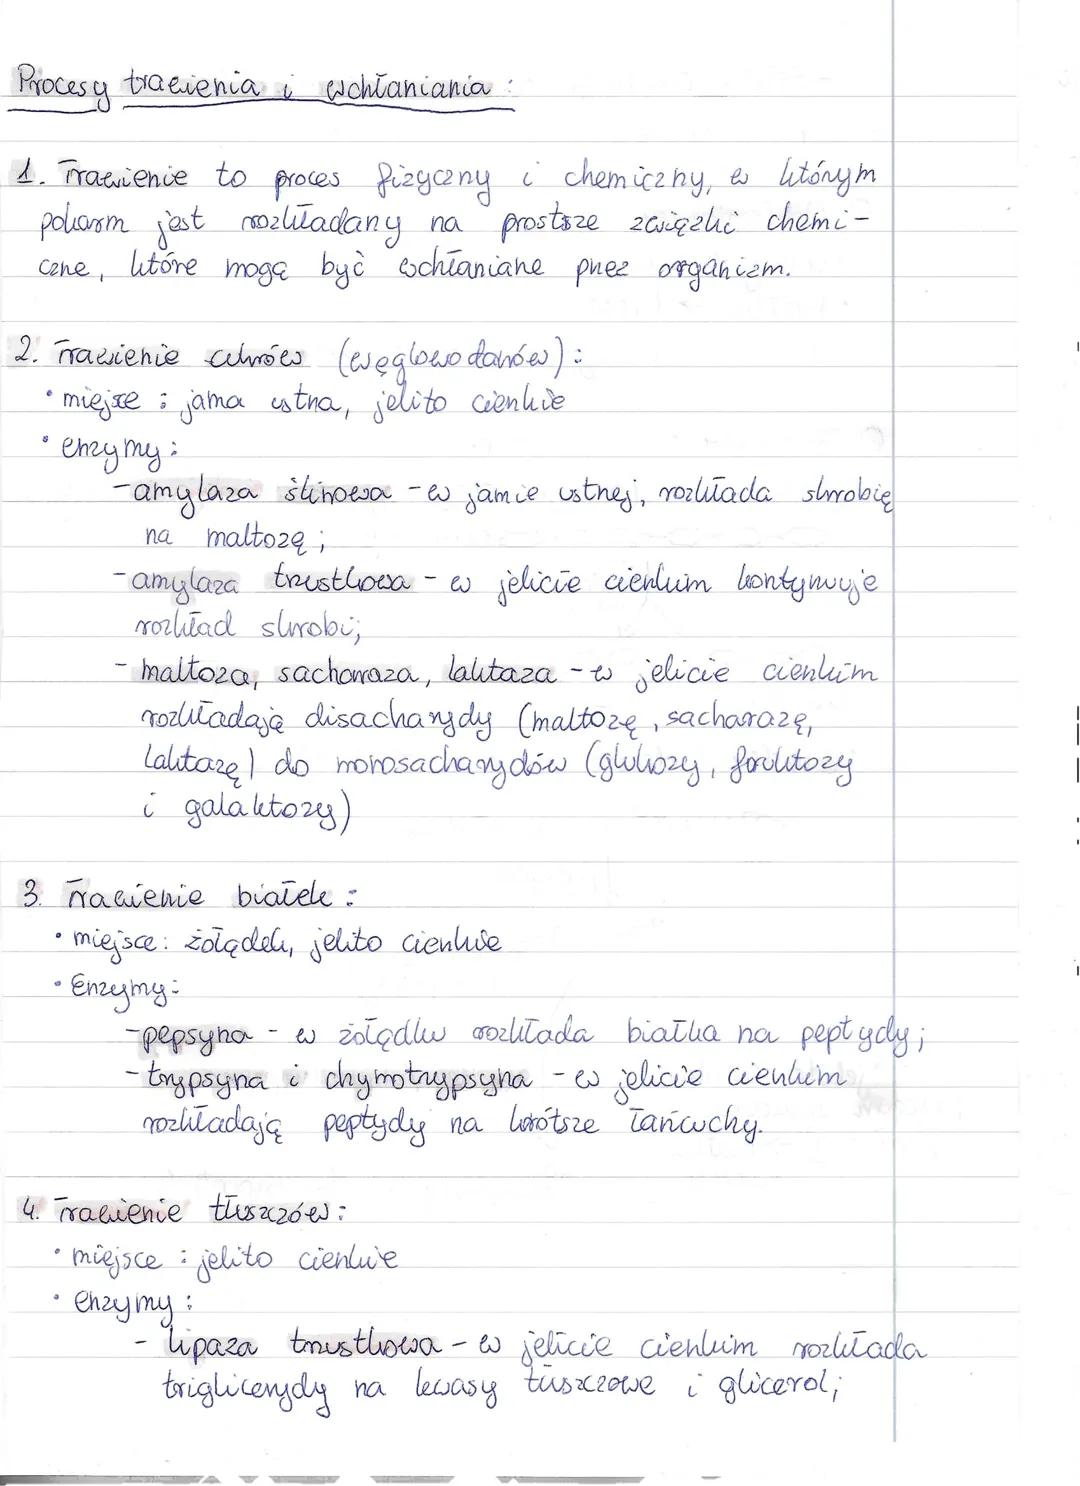 Procesy trawienia i wchłaniania :
1. Trawienie to proces fizyczny i chemiczny, w którym
pokarm jest rozkładany na prostsze związki chemi-
czne, które mogą być wchłaniane przez organizm.
2. Trawienie cukrów (węglowodanów) :
• miejsce : jama ustna, jelito cienkie
• enzymy :
- amylaza ślinowa - w jamie ustnej, rozkłada skrobię
na maltozę ;
- amylaza trzustkowa - w jelicie cienkim kontynuuje
rozkład skrobi;
- maltoza, sacharaza, laktaza - w jelicie cienkim
rozkładają disacharydy (maltozę, sacharazę,
laktazę) do monosacharydów (glukozy, fruktozy
i galaktozy)
3. Trawienie białek :
• miejsce: żołądek, jelito cienkie
• Enzymy:
- pepsyna - w żołądku rozkłada białka na peptydy ;
- trypsyna i chymotrypsyna - w jelicie cienkim
rozkładają peptydy na krótsze łańcuchy.
4. Trawienie tłuszczów :
• miejsce : jelito cienkie
• enzymy :
- lipaza trzustkowa - w jelicie cienkim rozkłada
triglicerydy na kwasy tłuszczowe i glicerol;